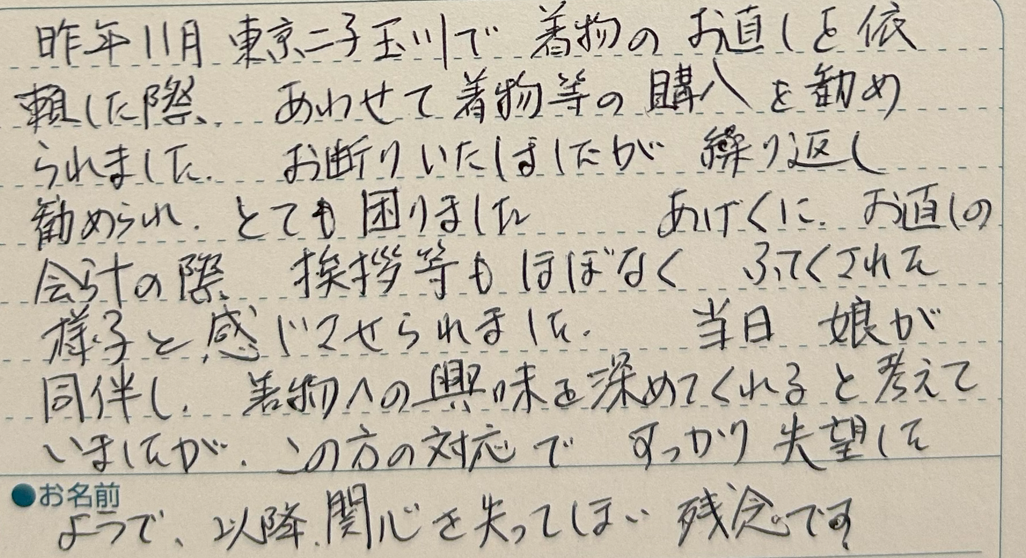 昨年11月 東京二子玉川で 着物の お直しを 依
頼した際、 あわせて 着物等の 購入 を 勧め
られました。 お断りいたしましたが 繰り返し
勧められ、とても 困りました あげくに、お直しの
会計の際、 挨拶等も ほぼなく ふてくされた
様子と 感じさせられました。 当日 娘が
同伴し、 着物への 興味を深めてくれると 考えて
いましたが、この方の対応で すっかり 失望した
●お名前
ようで、以降、関心を失ってしまい 残念です